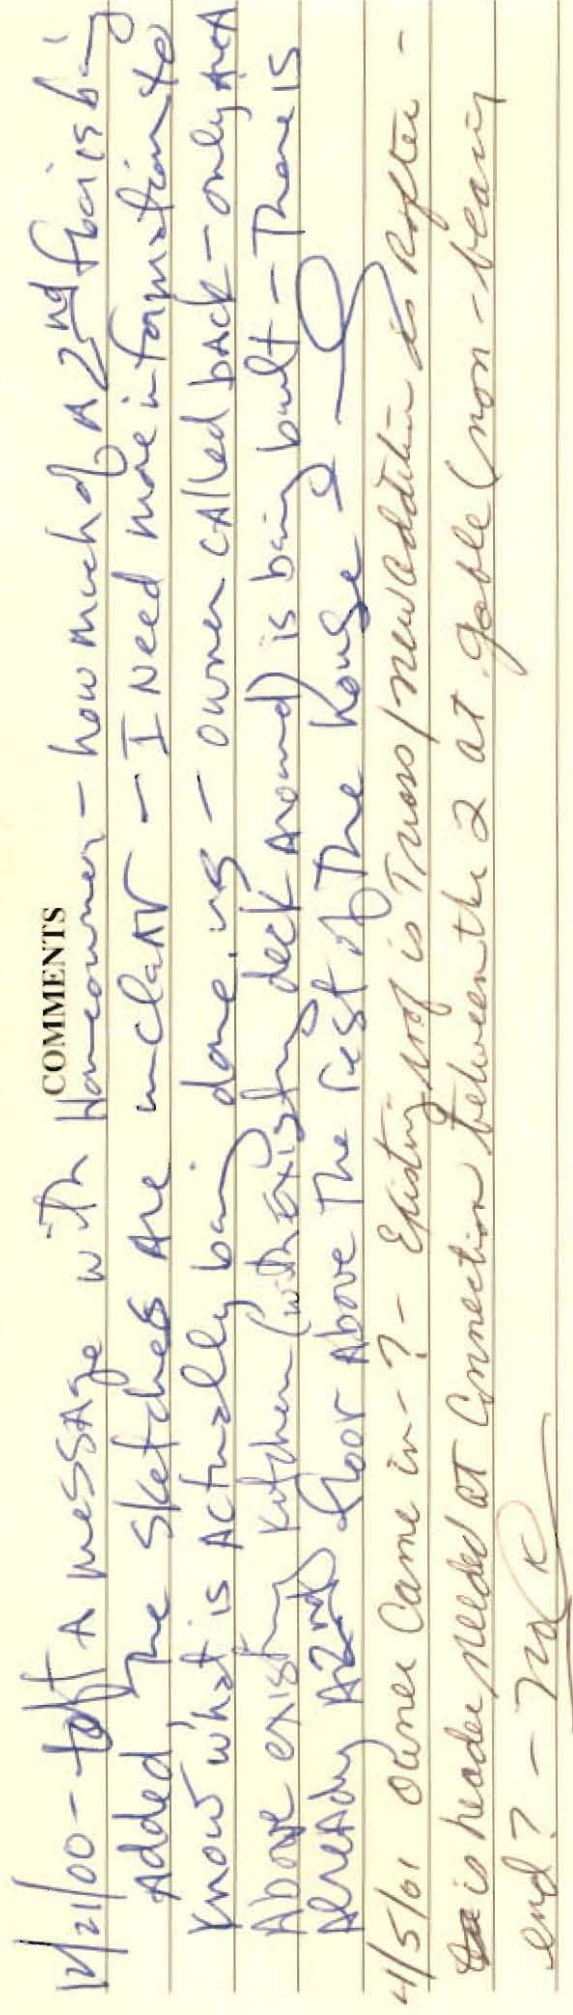 COMMENTS
12/21/00 - left A message with Homeowner - how much of A 2nd floor is being
Added, The sketches Are unclear - I Need more information to
Know what is Actually being done. - owner cAlled bAck - only AreA
Above existing kitchen (with existing deck Around) is being built - There is
AlreAdy A 2nd floor Above The rest of The house
4/5/01 Owner Came in - ? - Existing roof is Truss / new addition is Rafter -
is header needed at Connection between the 2 at gable (non-bearing
end? -